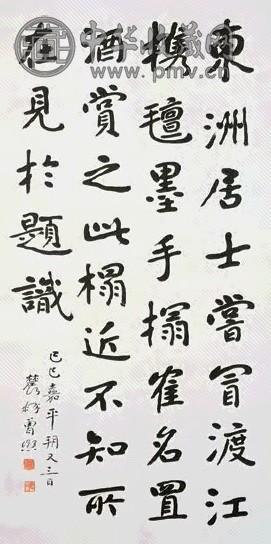 東洲居士嘗冒渡江
携氊墨手搨寉名置
酒賞之此榻近不知所
在見於題識
己巳嘉平朔又三日
農髯曾熙
中华收藏网
www.pmv.cn